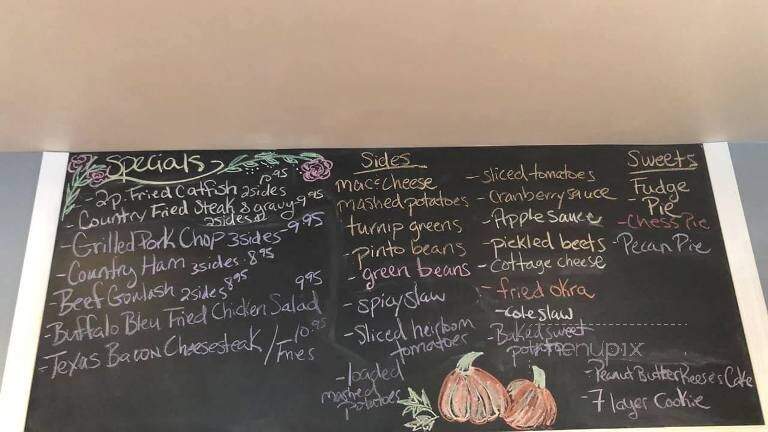 Specials
- 2p. Fried Catfish 2sides
- Country Fried Steak & gravy - 9.95
2sides
- Grilled Pork Chop 3sides 9.95
- Country Ham 3sides - 8.95
- Beef Goulash 2sides 8.95
- Buffalo Bleu Fried Chicken Salad 9.95
- Texas Bacon Cheesesteak / Fries 10.95
Sides
mac & cheese
mashed potatoes
turnip greens
- pinto beans
- green beans
- spicy slaw
- Sliced heirloom
tomatoes
- loaded
mashed
potatoes
- sliced tomatoes
- Cranberry sauce
- Apple Sauce
- pickled beets
- cottage cheese
- fried okra
- cole slaw
Baked sweet
Sweets
Fudge
- Pie
- Chess Pie
- Pecan Pie
- Peanut Butter Reeses Cake
- 7 layer Cookie
menupix